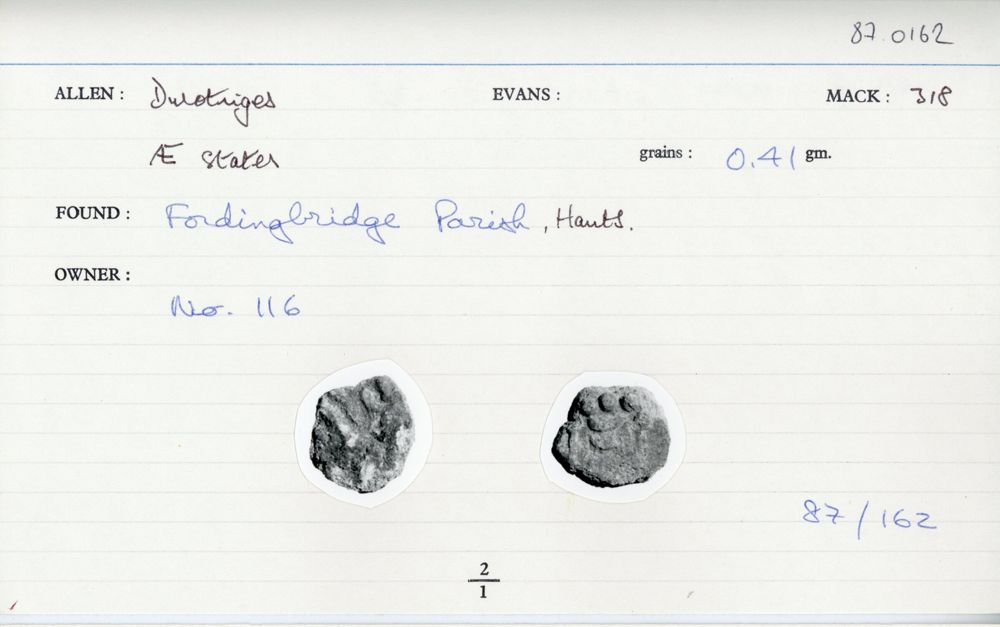 87.0162
ALLEN : Durotriges EVANS : MACK : 318
Æ stater grains : 0.41 gm.
FOUND : Fordingbridge Parish, Hants.
OWNER :
No. 116
87/162
2
1